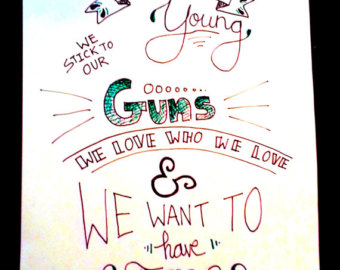 Young
WE
STICK TO
OUR
Gums
WE LOVE WHO WE LOVE
&
WE WANT TO
"have